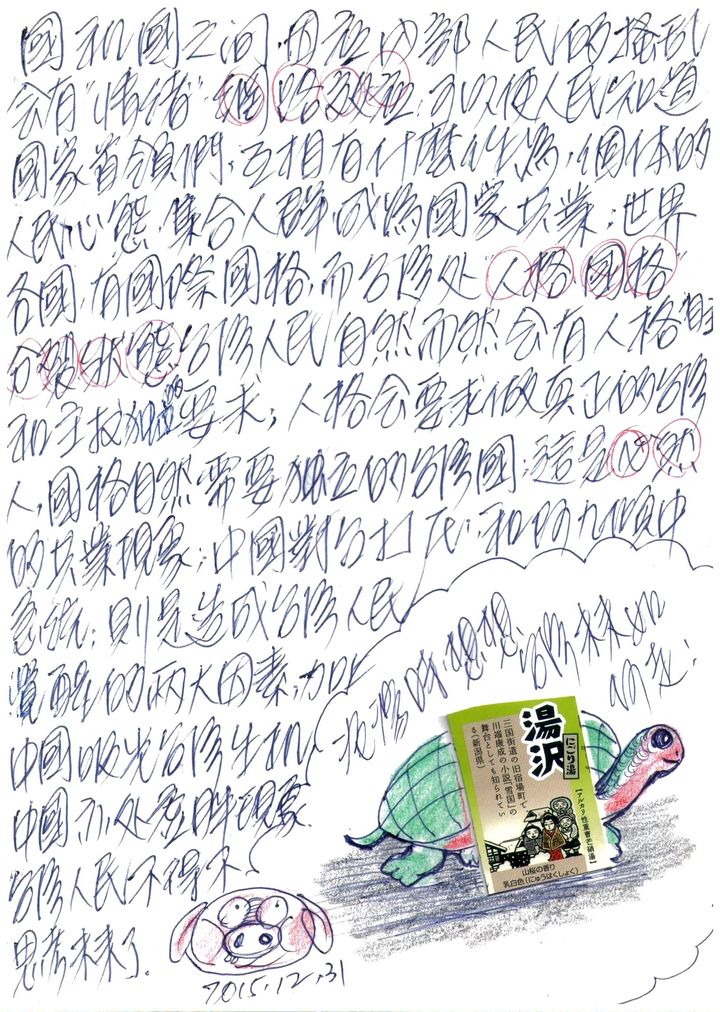 國和國之間,因在內部人民的騷乱
会有"情緒"網路效应,可以使人民知道
國家首領們,互相有什麼作為,個体的
人民心態,集合人群,成為國家共業;世界
各國,有國際國格,而台湾处"人格國格"
分裂狀態,台湾人民自然而然会有人格
和 要求;人格会要求做真正的台湾
人,國格自然需要独立的台湾國;這是必然
的共業現象;中國對台打压,和 傾中
急統;則是造成台湾人民
覺醒的兩大因素,加上
中國吸光台湾生机,
中國亦处 現象
台湾人民不得不
思考未來了.
泡湯時,想想,台湾未如
何走.
2015.12.31
湯沢
にごり湯
【アルカリ性重曹芒硝湯】
三国街道の旧宿場町で
川端康成の小説「雪国」の
舞台としても知られてい
る(新潟県)
山桜の香り
乳白色(にゅうはくしょく)